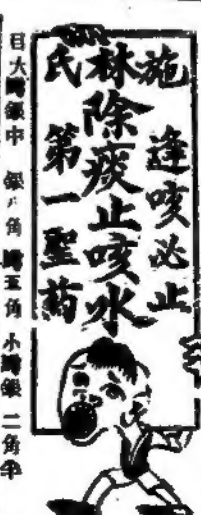 施林氏
逢咳必止
除痰止咳水
第一聖葯
目大樽銀中 銀八角 樽五角 小樽銀 二角半